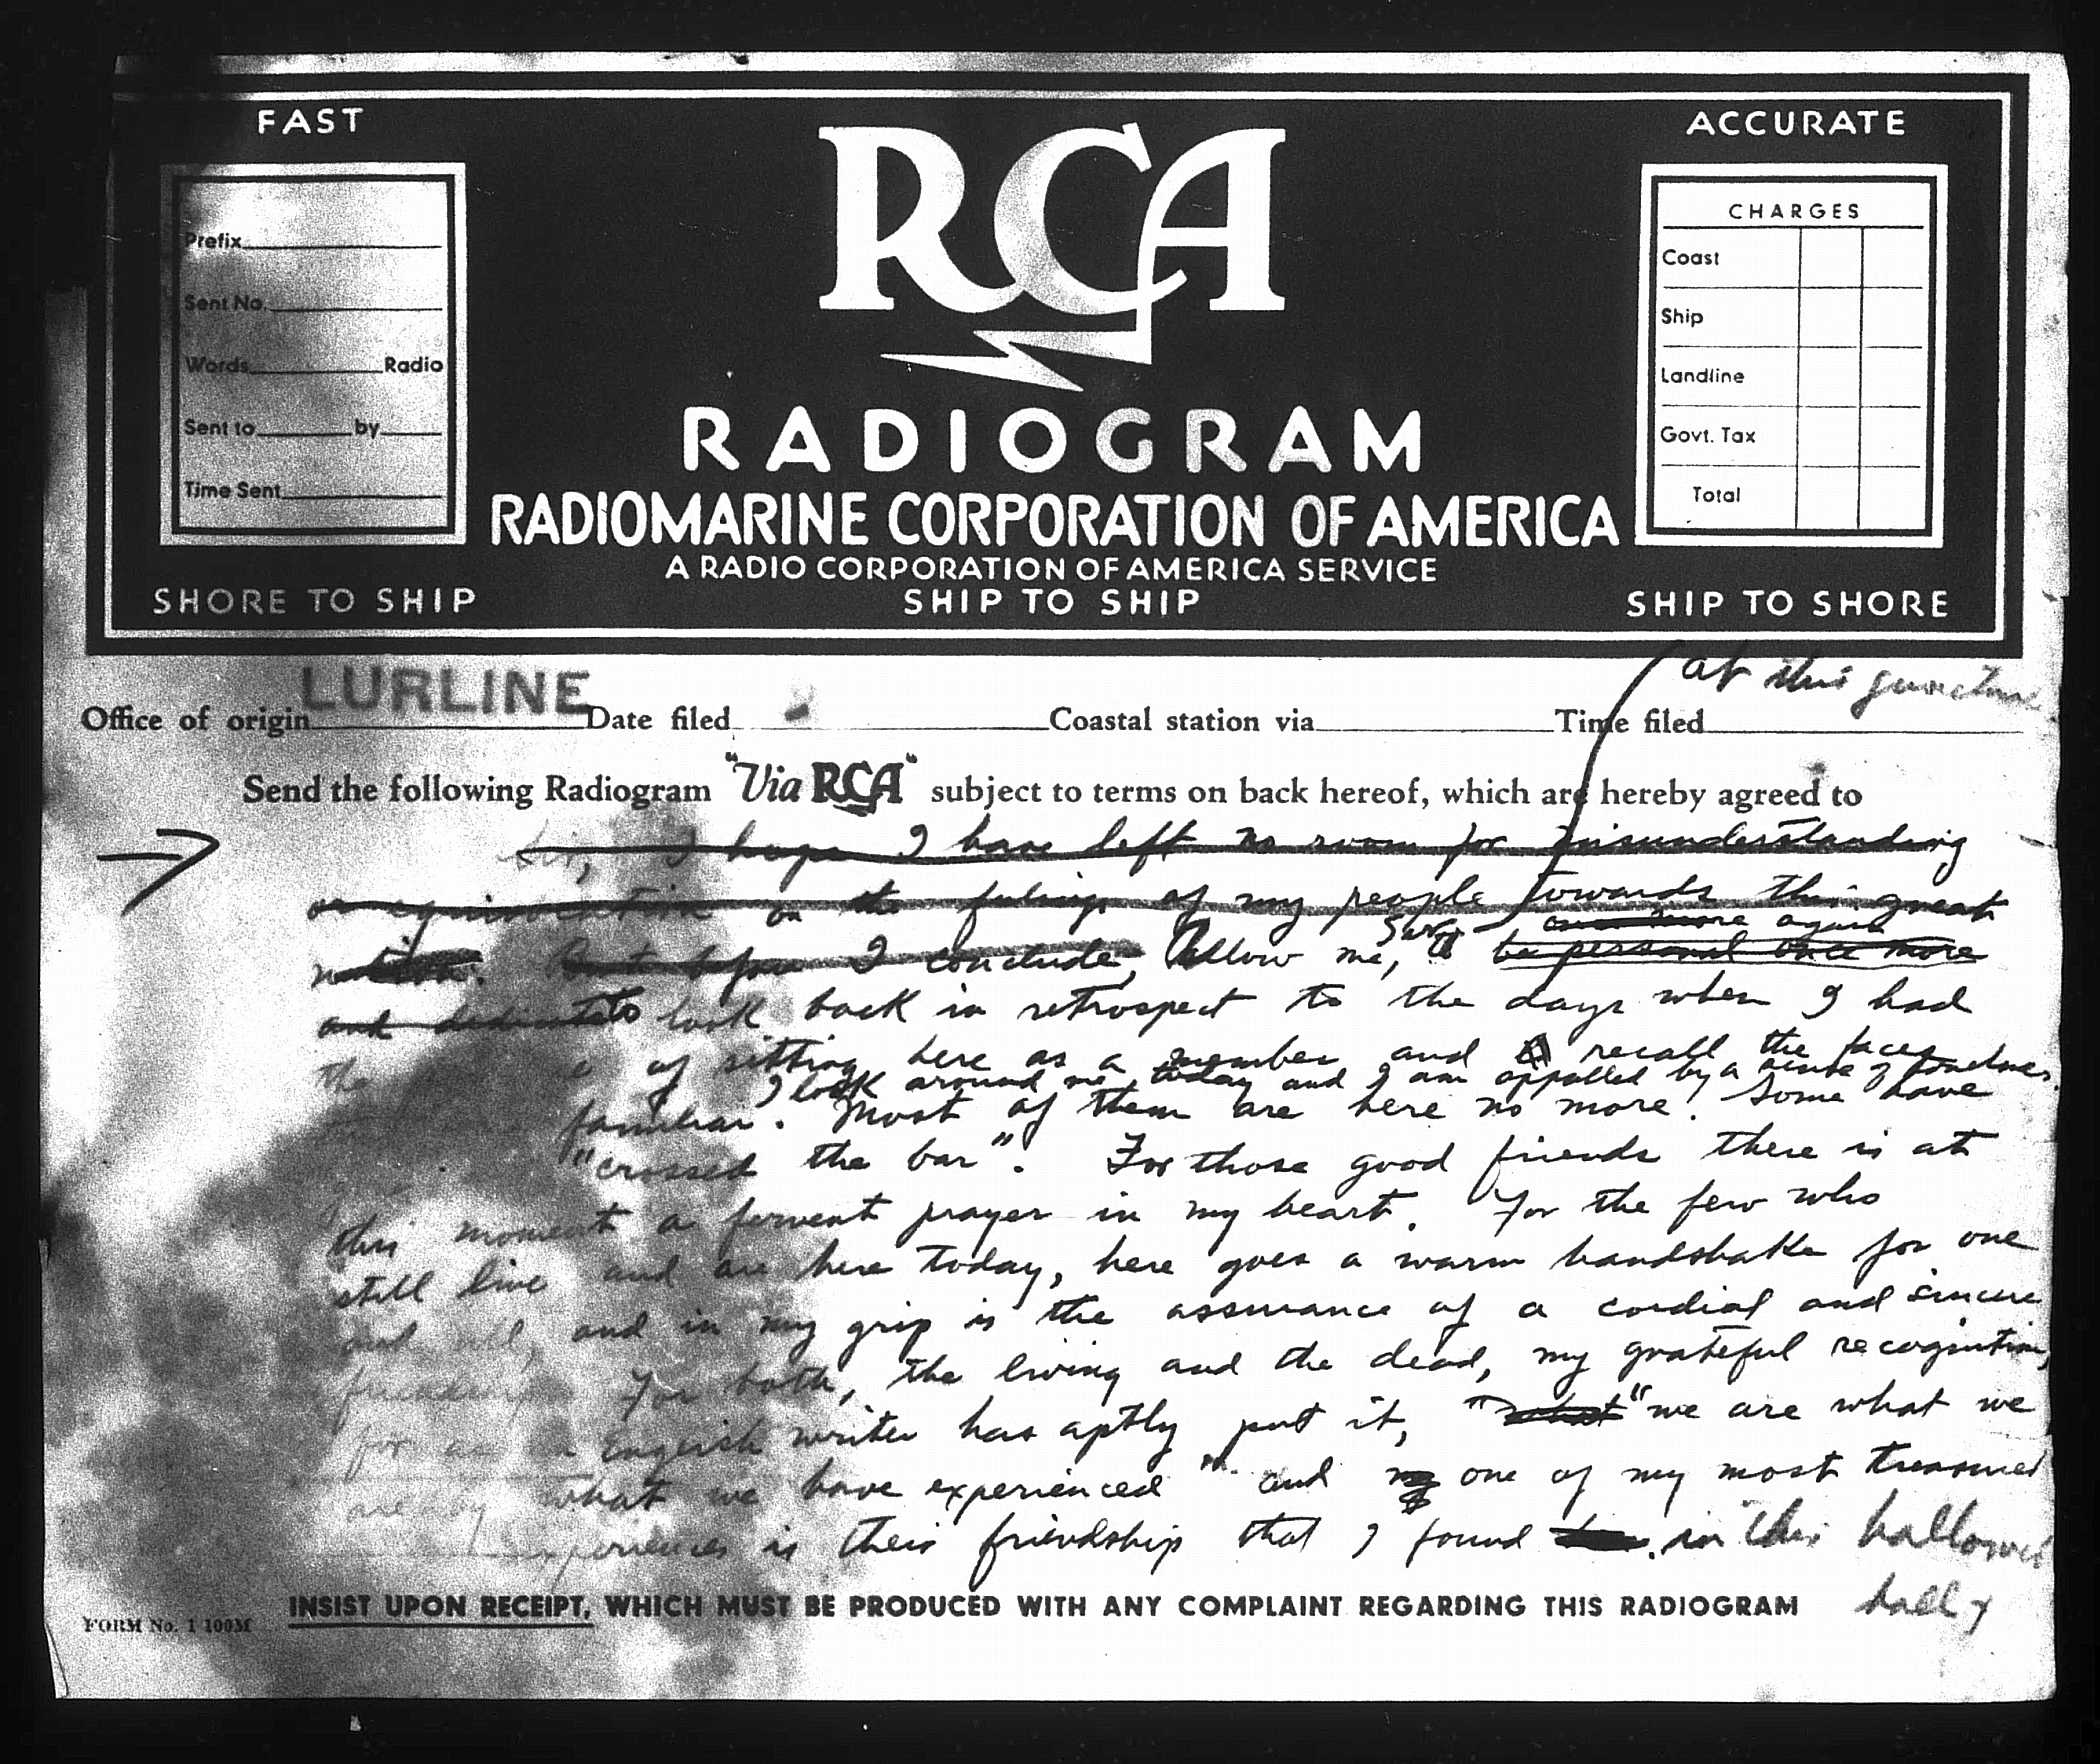 FAST
RCA
ACCURATE
Prefix
Sent No.
Words Radio
Sent to by
Time Sent
CHARGES
Coast
Ship
Landline
Govt. Tax
Total
RADIOGRAM
RADIOMARINE CORPORATION OF AMERICA
A RADIO CORPORATION OF AMERICA SERVICE
SHORE TO SHIP
SHIP TO SHIP
SHIP TO SHORE
at this juncture
Office of origin LURLINE Date filed Coastal station via Time filed
Send the following Radiogram "Via RCA" subject to terms on back hereof, which are hereby agreed to
Sir, I hope I have left no room for misunderstanding
or equivocation on the feelings of my people towards this great
once more again
nation. But before I conclude, Allow me, Sir, to be personal once more
and dedicate to look back in retrospect to the days when I had
the of sitting here as a member and recall the faces
I look around me today and I am appalled by a sense of loneliness.
familiar. Most of them are here no more. Some have
"crossed the bar". For those good friends there is at
this moment a fervent prayer in my heart. For the few who
still live and are here today, here goes a warm handshake for one
and all, and in my grip is the assurance of a cordial and sincere
friendship. For both, the living and the dead, my grateful recognition,
for as an English writer has aptly put it, "what "we are what we
are by what we have experienced". and my one of my most treasured
experiences is their friendship that I found in this hallowed
hall
INSIST UPON RECEIPT, WHICH MUST BE PRODUCED WITH ANY COMPLAINT REGARDING THIS RADIOGRAM
FORM No. 1 100M